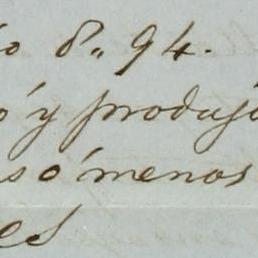 io 8,, 94.
ó y produjo
s ó menos
es